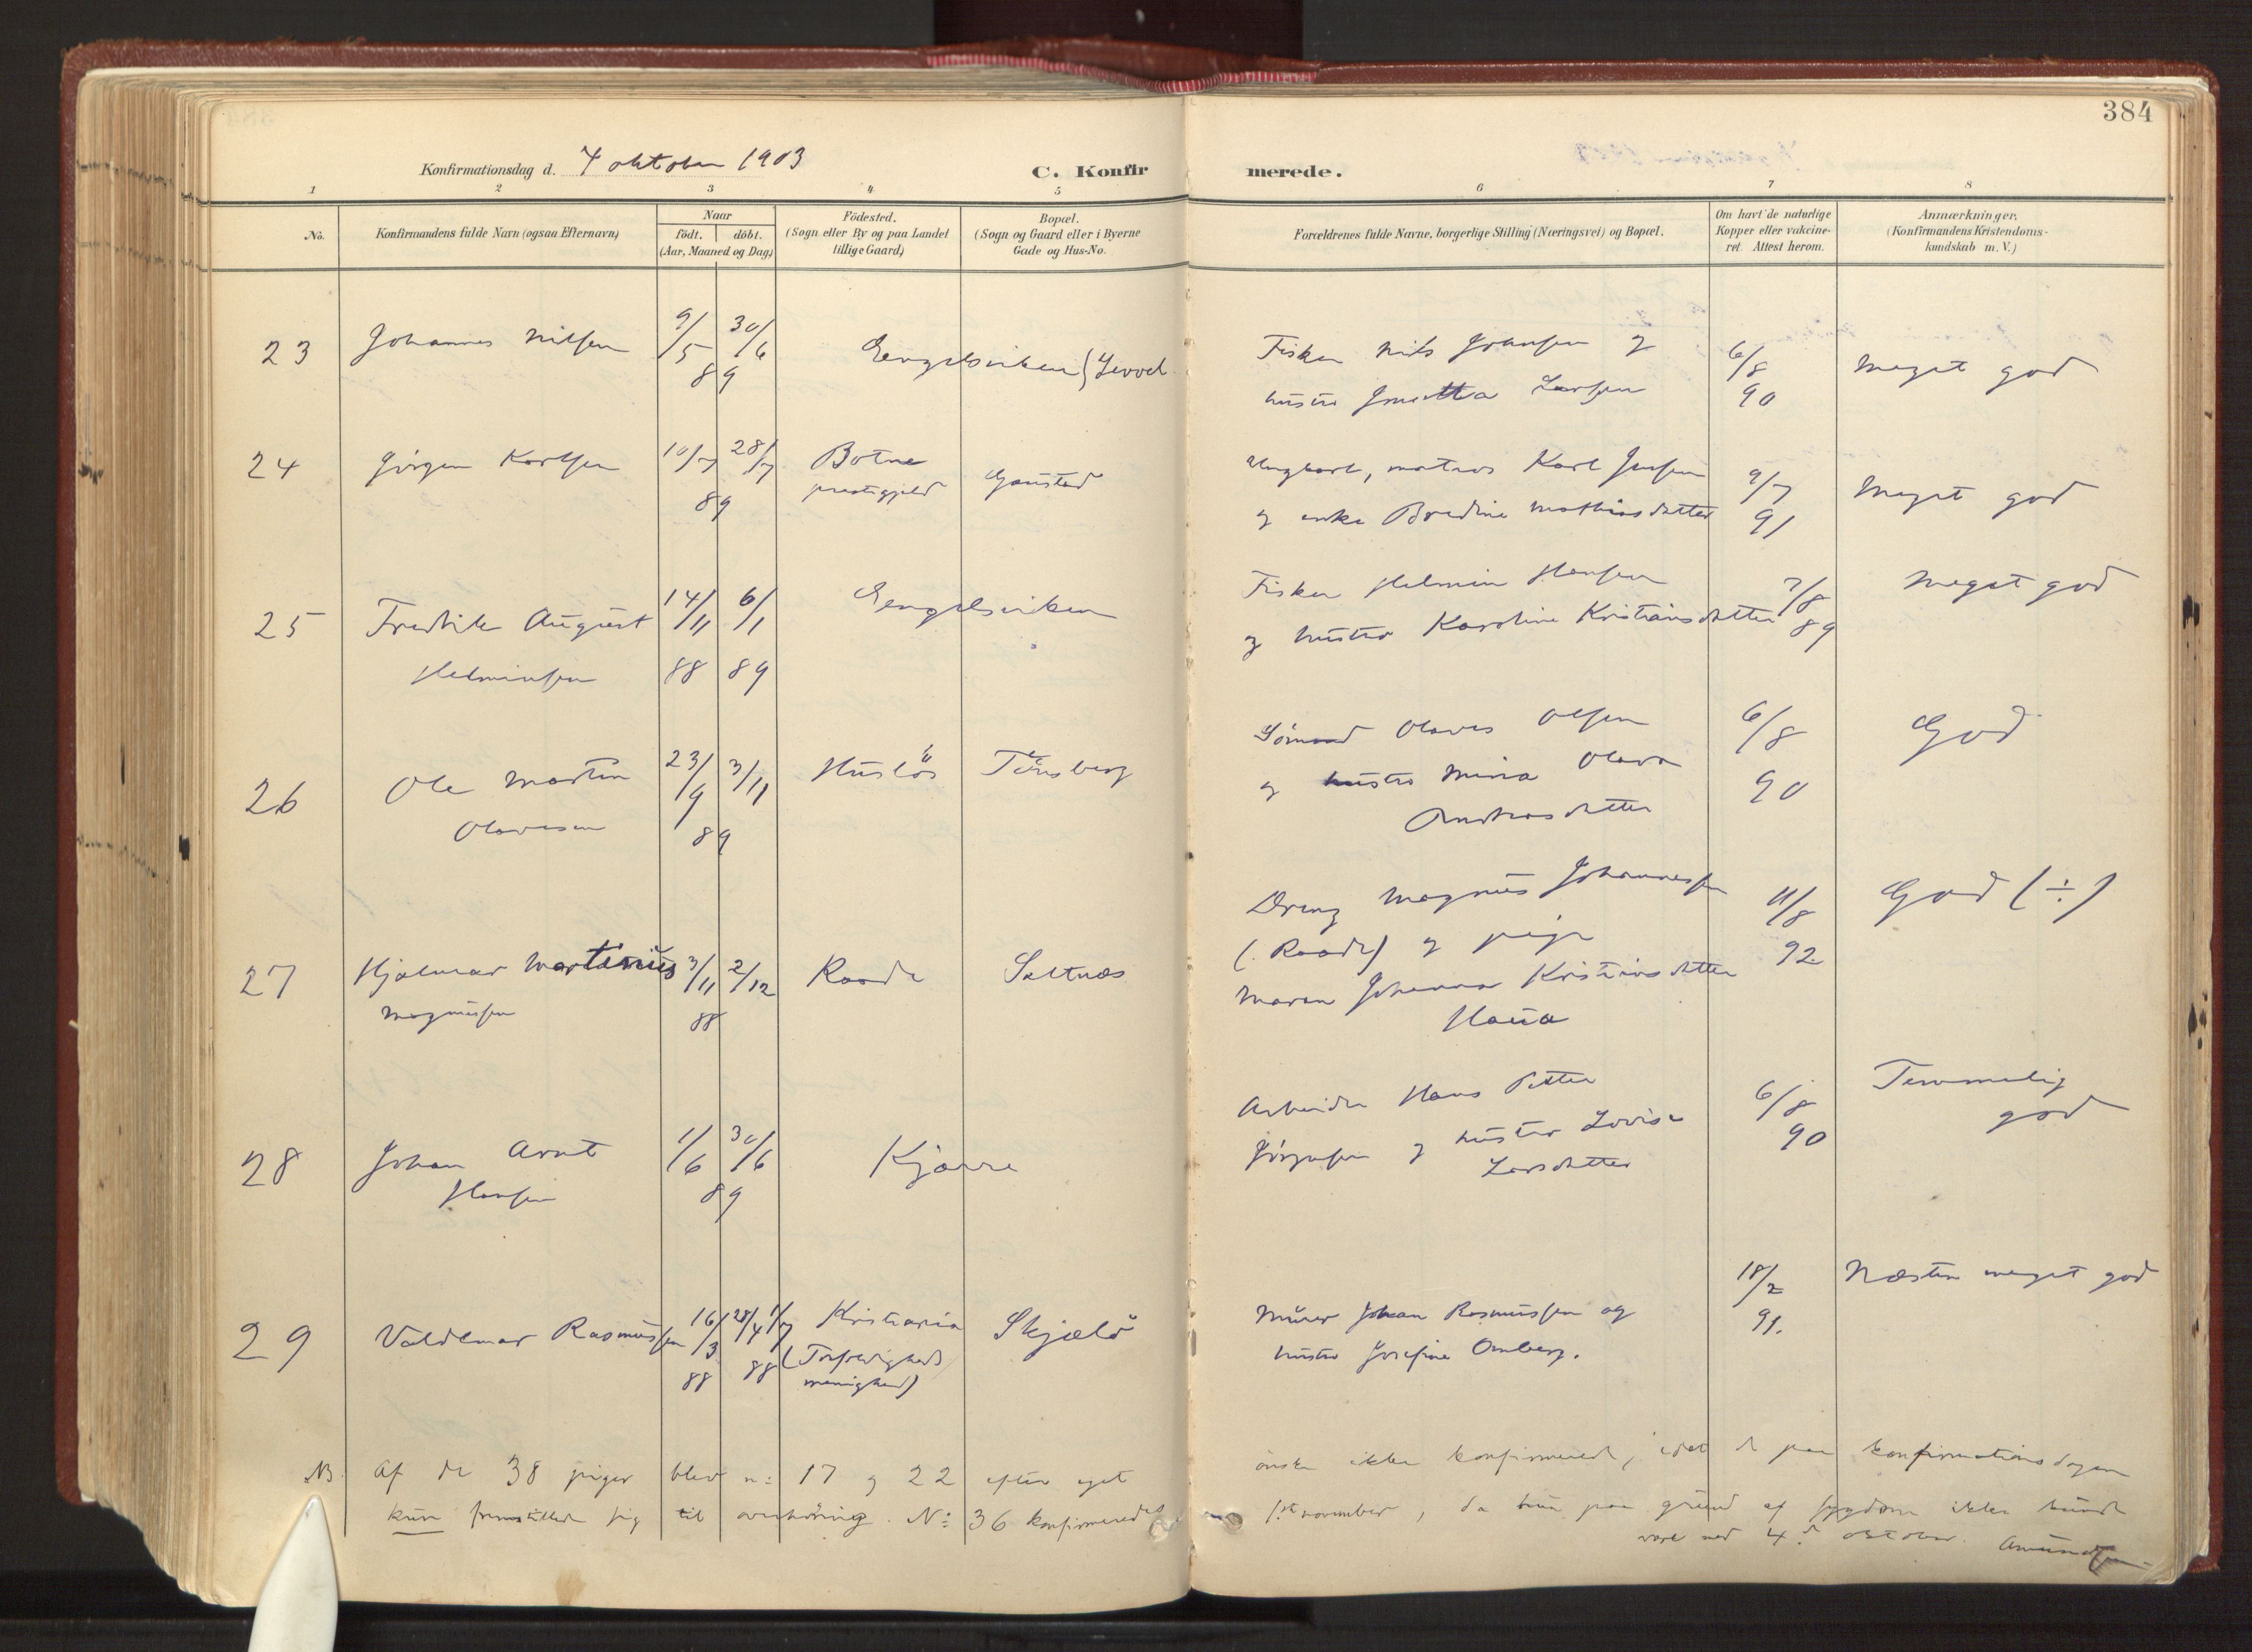 384
Konfirmationsdag d. 4 oktober 1903
C. Konfirmerede.
1 2 3 4 5 6 7 8
No.
Konfirmandens fulde Navn (ogsaa Efternavn)
Naar
födt. döbt.
(Aar, Maaned og Dag)
Födested.
(Sogn eller By og paa Landet
tillige Gaard)
Bopæl.
(Sogn og Gaard eller i Byerne
Gade og Hus-No.
Forældrenes fulde Navne, borgerlige Stilling (Næringsvei) og Bopæl.
Om havt de naturlige
Kopper eller vakcine-
ret. Attest herom.
Anmærkninger.
(Konfirmandens Kristendoms-
kundskab m. V.)
23 Johannes Nilsen 9/5 30/6 89 Engelsviken
Fisker Nils Johansen og
hustru Larsen
6/8 90
Meget god
24 Jörgen Karlsen 10/7 28/7 89 Botne
prestegjeld
Gaustad
Ungkarl, matros Karl Jensen
og enke Bredine Mathiasdatter
9/7 91
Meget god
25 Fredrik August
Helminsen
14/11 88 6/1 89
Engelsviken
Fisker Helmin Hansen
og hustru Karoline Kristiansdatter
7/8 89
Meget god
26 Ole Martin
Olavesen
23/9 3/11 89
Huslös Tönsberg
Sömand Olaves Olsen
og hustru Mina Olava
Andreasdatter
6/8 90
God
27 Hjalmar Martinius
Magnussen
3/11 2/12 88
Raade Saltnæs
Dreng Magnus Johannessen
(Raade) og pige
Maren Johanna Kristiansdatter
Haua
11/8 92
God (÷)
28 Johan Arnt
Hansen
1/6 30/6 89
Kjære
Arbeider Hans Petter
Jörgensen og hustru Lovise
Larsdatter
6/8 90
Temmelig
god
29 Valdemar Rasmussen
16/3 88 28/4 1/7 88
Kristiania
menighed)
Skjælö
Murer Johan Rasmussen og
hustru Josefine Omberg.
18/2 91.
Næsten meget god
NB. Af de 38 piger blev n: 17 og 22 efter eget önske ikke konfirmeret, idet de paa konfirmationsdagen
kun fremstillede sig til overhöring. N: 36 konfirmeredes 1ste november, da hun paa grund af sygdom ikke kunde
være med 4de oktober. Amundsen